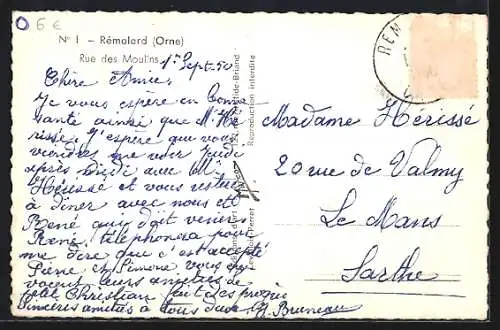 6 €
N° 1 – Rémalard (Orne)
Rue des Moulins
1er Sept-50
Chère Amie,
Je vous espère en bonne
santé ainsi que Mr Hé
rissé, j'espère que vous
viendrez me voir jeudi
après midi avec Mr
Hérissé et vous resterez
à diner avec nous et
René qui doit venir
René téléphonera pour
me dire que c'est accepté
Pierre et Simone vous en
voient leurs amitiés
petit Christian fait des progrès
Sincères amitiés à tous deux Bruneau
Reproduction interdite
REM
Madame Hérissé
20 rue de Valmy
Le Mans
Sarthe